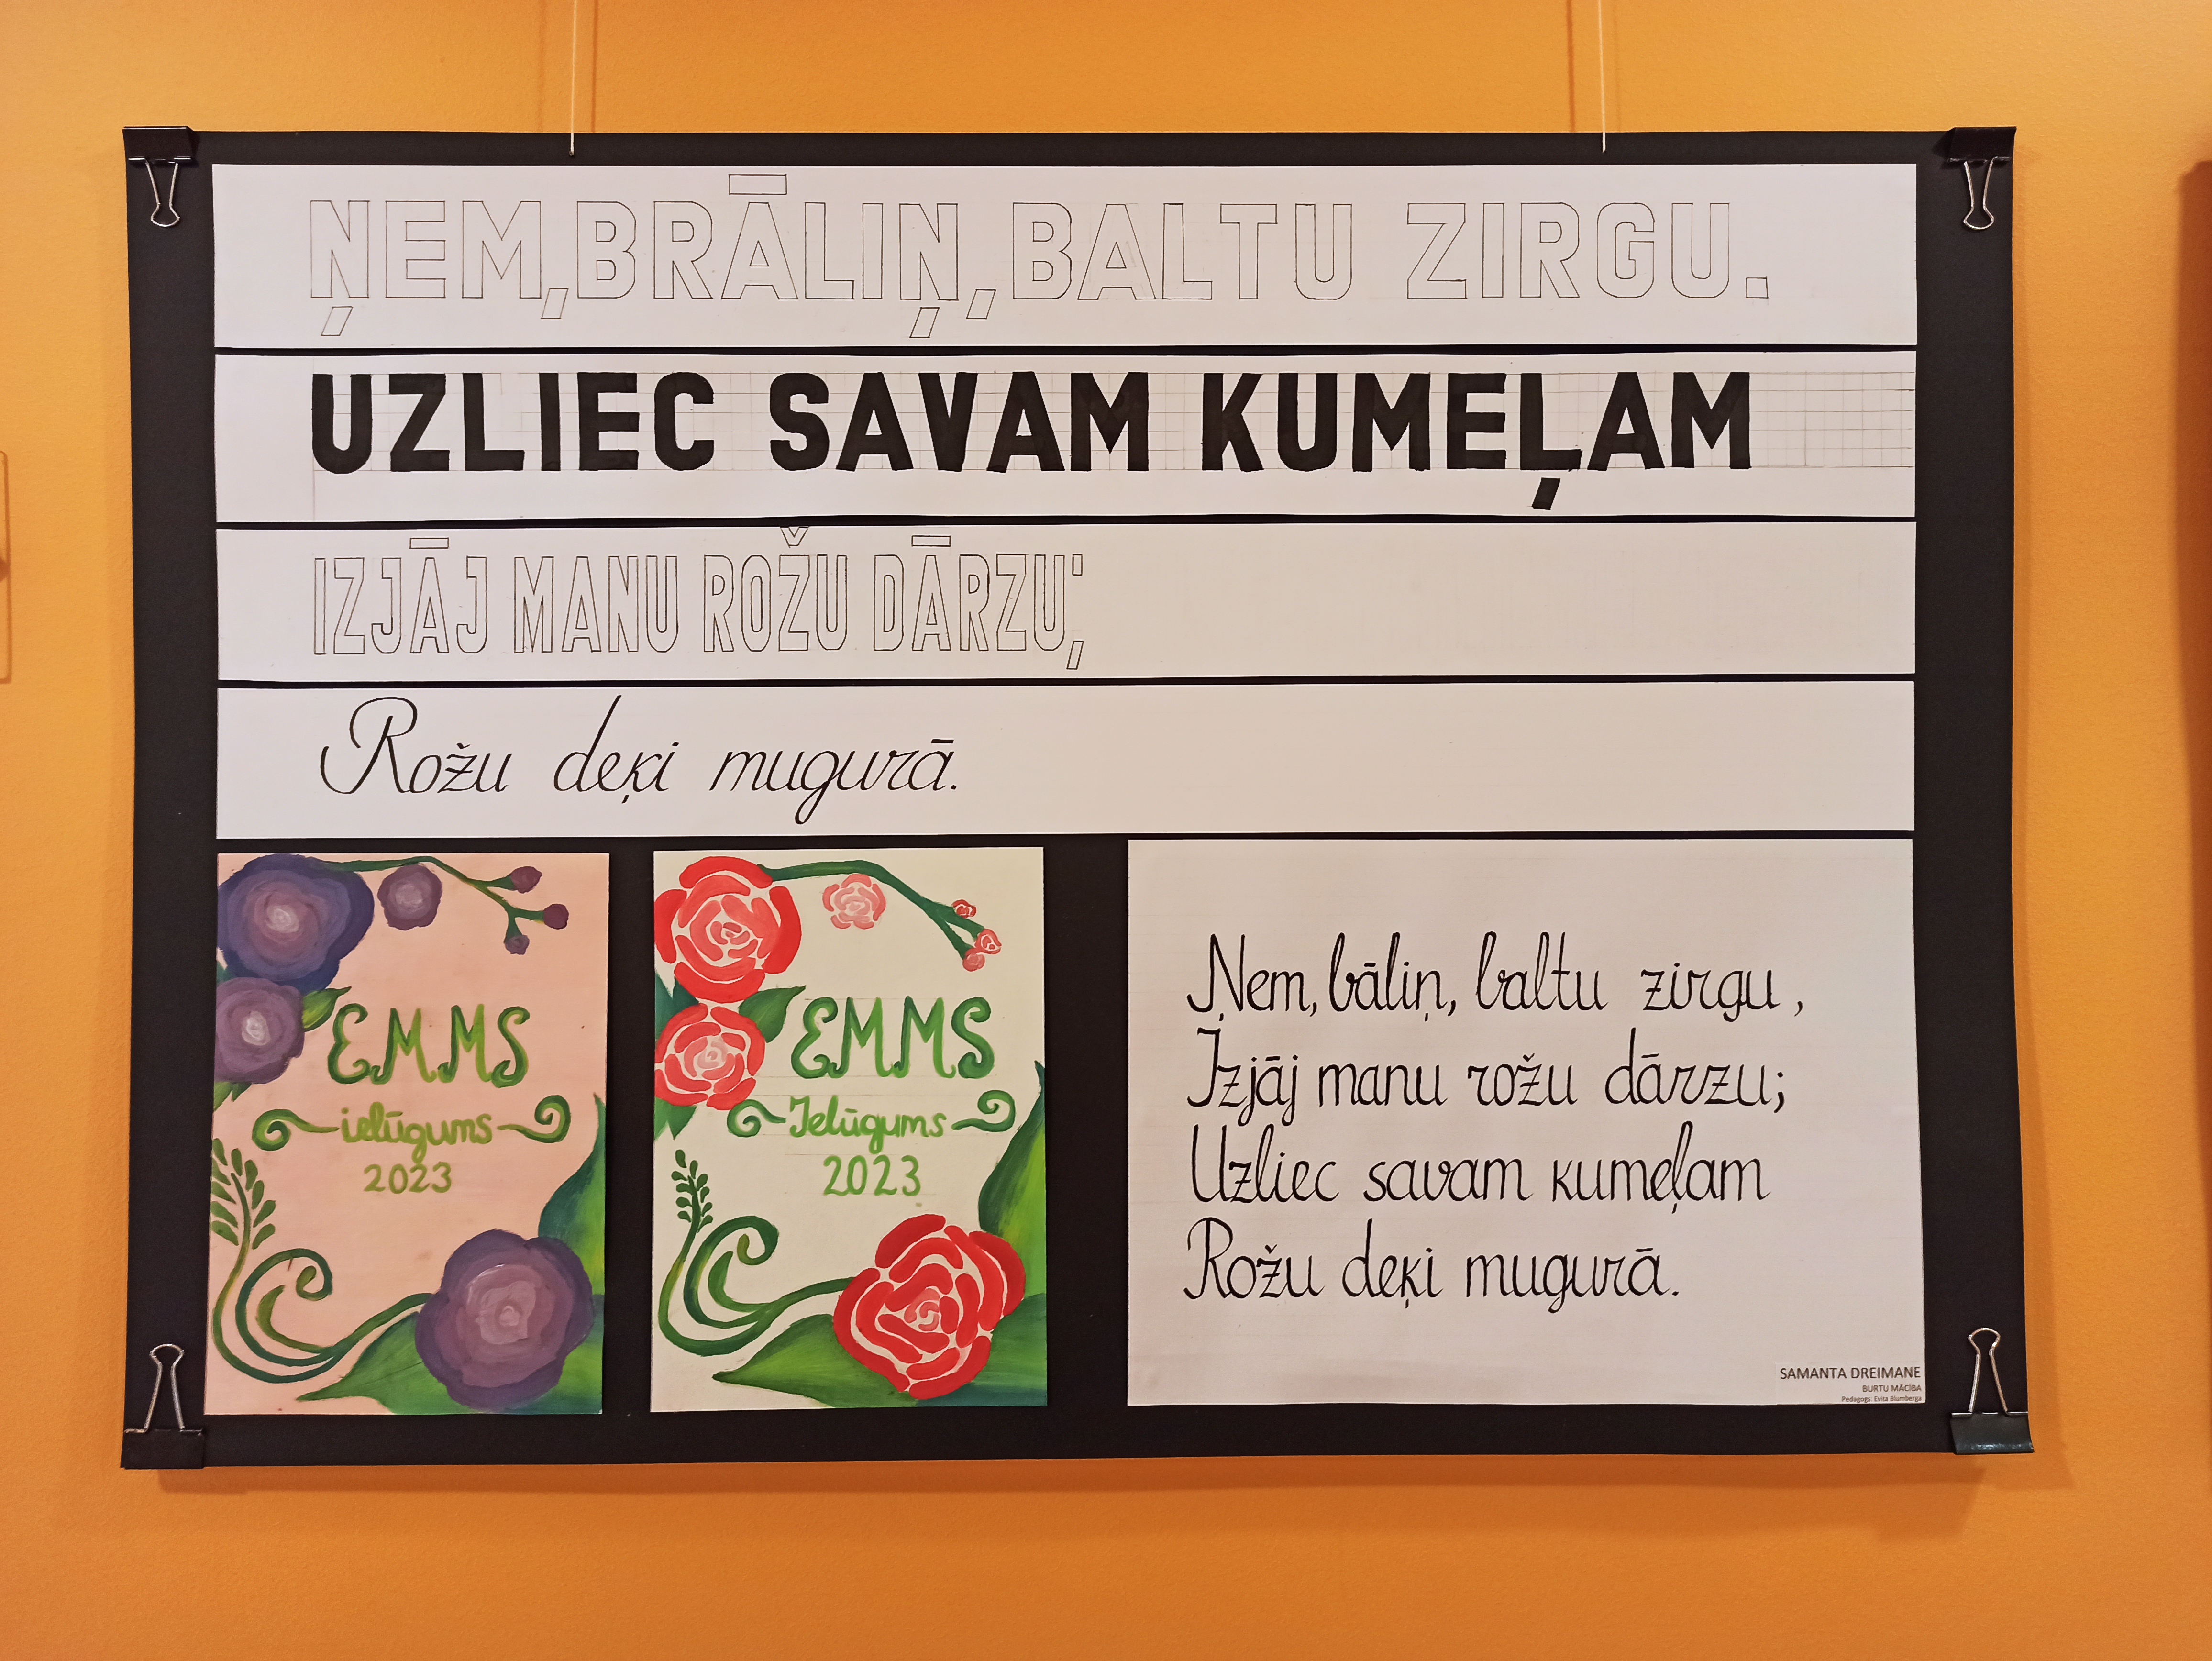 ŅEM, BRĀLIŅ, BALTU ZIRGU.
UZLIEC SAVAM KUMEĻAM
IZJĀJ MANU ROŽU DĀRZU;
Rožu deķi mugurā.
EMMS
ielūgums
2023
EMMS
Ielūgums
2023
Ņem, bāliņ, baltu zirgu,
Izjāj manu rožu dārzu;
Uzliec savam kumeļam
Rožu deķi mugurā.
SAMANTA DREIMANE
BURTU MĀCĪBA
Pedagogs: Evita Blumberga